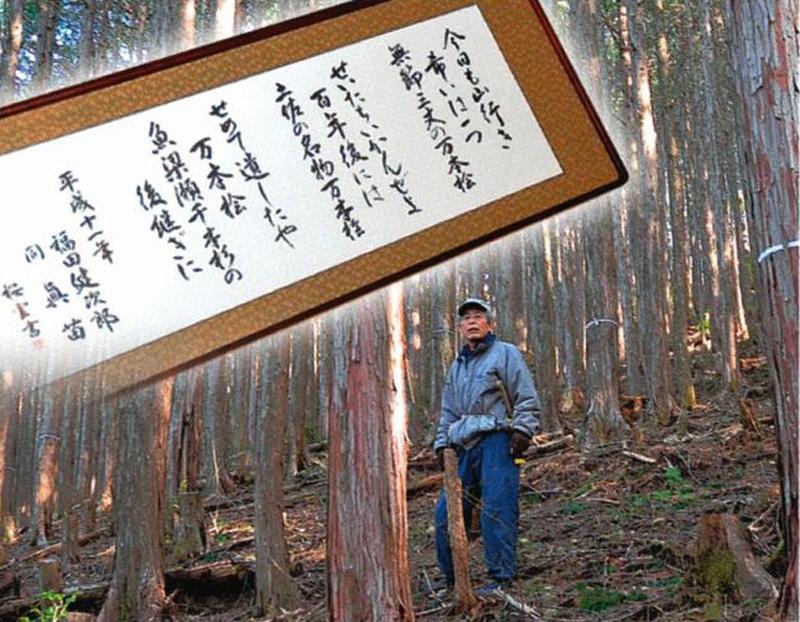 今日も山行き
希いは一つ
無節三丈の万本桧
せいたちいかんぜよ
百年後には
土佐の名物万本桧
せめて遺したや
万本桧
魚梁瀬千本杉の
後継ぎに
平成十一年
福田健次郎
同 眞苗